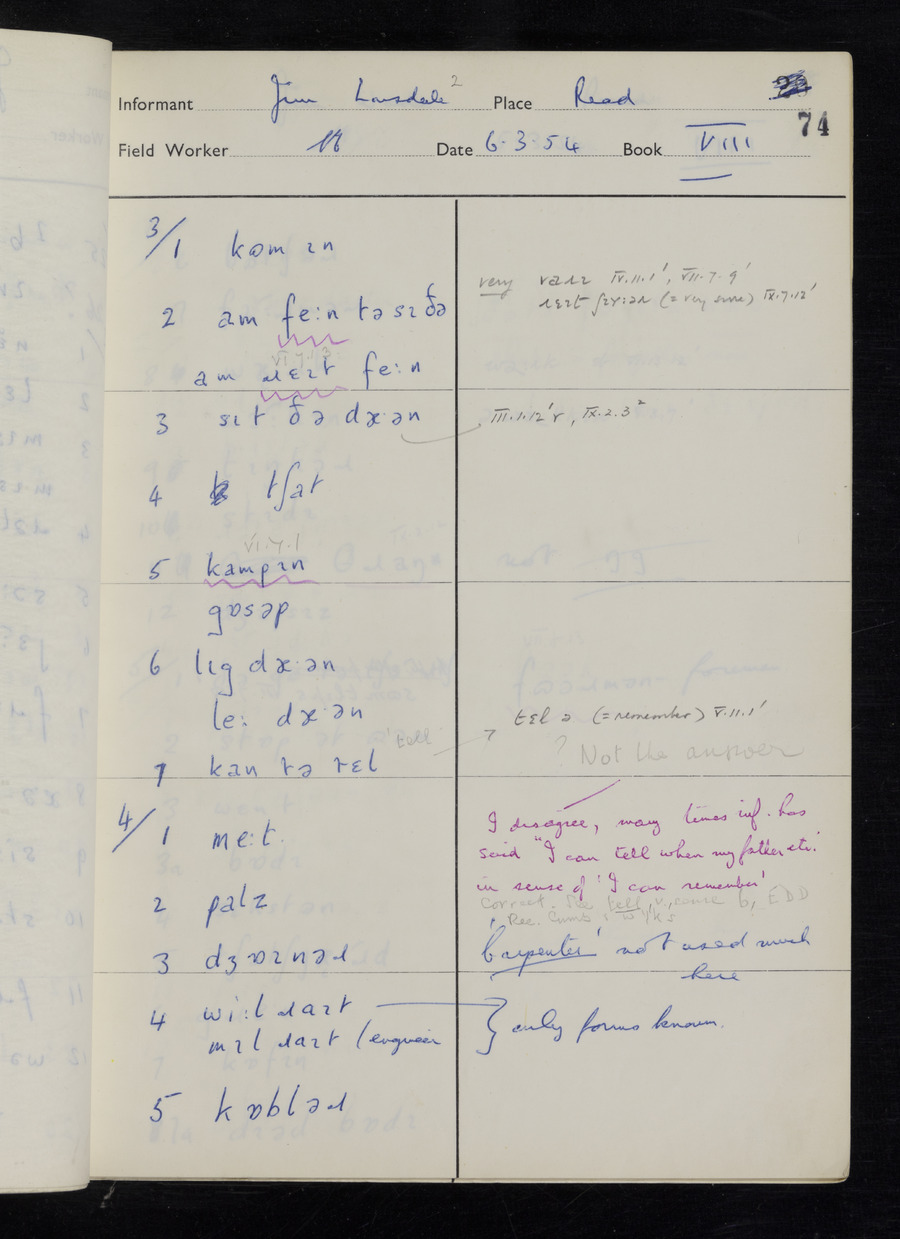 Informant Jim Lonsdale 2 Place Read
74
Field Worker Date 6.3.54 Book VIII
3/1 kʊmɪn
very IV.11.1', VII.7.9'
(= very sure) IX.7.12'
2 am fe:n tə sɪ ðə
VI.7.13
am ɹɛɪt fe:n
3 sɪt ðə dæ·ən
III.1.12' r, IX.2.3²
4 tʃat
VI.4.1
5 kampɪn
gɒsəp
6 lɪg dæ·ən
le: dæ·ən
'tell
tɛl ə (= remember) V.11.1'
? Not the answer
7 kan tə tɛl
4/1 me:t.
I disagree, many times inf. has
said "I can tell when my father etc.'
in sense of 'I can remember'
correct. See tell, v., cause b, EDD
Rec. Cumb & wYks
2 palz
3 dʒɒɪnəɹ
'Carpenter' not used much
here
4 wi:l ɹaɪt
mɪl ɹaɪt (engineer
} only forms known.
5 kɒbləɹ